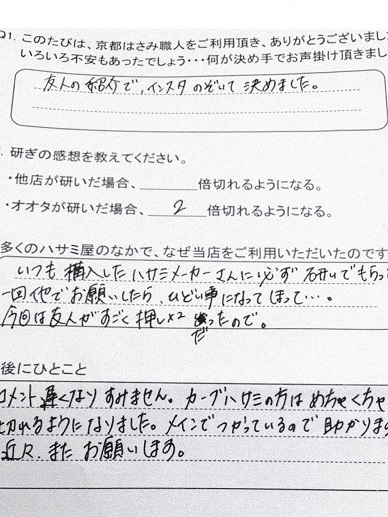 Q1. このたびは、京都はさみ職人をご利用頂き、ありがとうございまし
いろいろ不安もあったでしょう・・・何が決め手でお声掛け頂きまし
友人の紹介で、インスタのぞいて決めました。
. 研ぎの感想を教えてください。
・他店が研いだ場合、______倍切れるようになる。
・オオタが研いだ場合、2倍切れるようになる。
多くのハサミ屋のなかで、なぜ当店をご利用いただいたのです
いつも購入したハサミメーカーさんに必ず研いでもらっ
一回他でお願いしたら、ひどい事になってしまって…。
今回は友人がすごく押し×2だったので。
後にひとこと
コメント遅くなりすみません。カーブハサミの方はめちゃくちゃ
切れるようになりました。メインでつかっているので助かりま
近々、またお願いします。